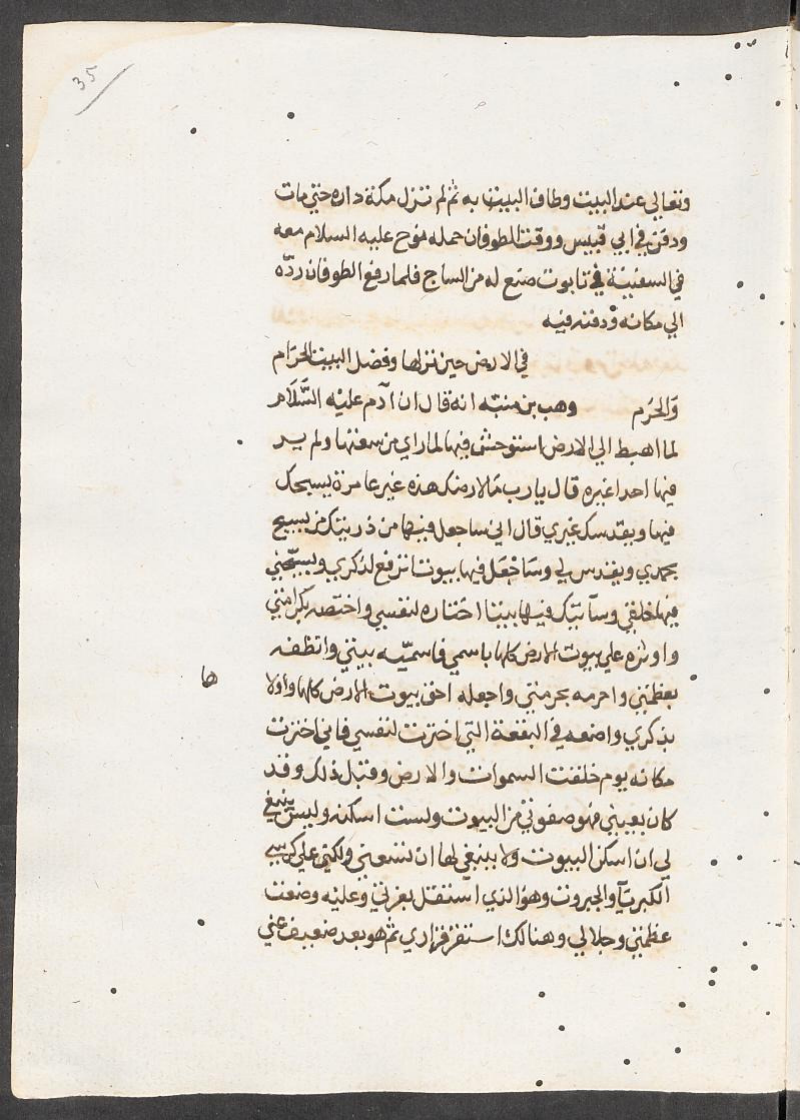 35
وتعالي عند البيت وطاف البيت به ثم لم تزل مكة داره حتي مات
ودفن في ابي قبيس ووقت الطوفان حمله نوح عليه السلام معه
في السفينة في تابوت صنع له من الساج فلما رفع الطوفان ردّه
الي مكانه ودفنه فيه
في الارض حين نزلها وفضل البيت الحرَام
وَالحرَم وهب بن منبّه انه قال ان آدم عليْه السَّلَام
لما اهبط الي الارض استوحش فيها لما راي من سعتها ولم ير
فيها احدا غيره قال يا رب ما لارضك هذه غير عامرة يسبحك
فيها ويقدسك غيري قال اني ساجعل فيها من ذريتك من يسبح
بحمدي ويقدس لي وسَاجْعَل فيها بيوتا ترفع لذكري ويسبّحني
فيها خلقي وسآتيك فيها بيتا اختاره لنفسي واختصه بكرامتي
واوثره علي بيوت الارض كلها باسمي فاسميّه بيتي وانظفه
بعظمتي واحرمه بحرمتي واجعله احق بيوت الارض كلها واولا
ها
بذكري واضعه في البقعة التي اخترت لنفسي فاني اخترت
مكانه يوم خلقت السموات والارض وقبل ذلك وقد
كان بغيتي فهو صفوتي من البيوت ولست اسكنه وليس ينبغي
لي ان اسكن البيوت ولا ينبغي لها ان تسعني ولكني علي كرسي
الكبريآ والجبروت وهو الذي استقل بعزتي وعليْه وضعت
عظمتي وجلالي وهنالك استقر قراري ثم هو بعد ضعيف عني